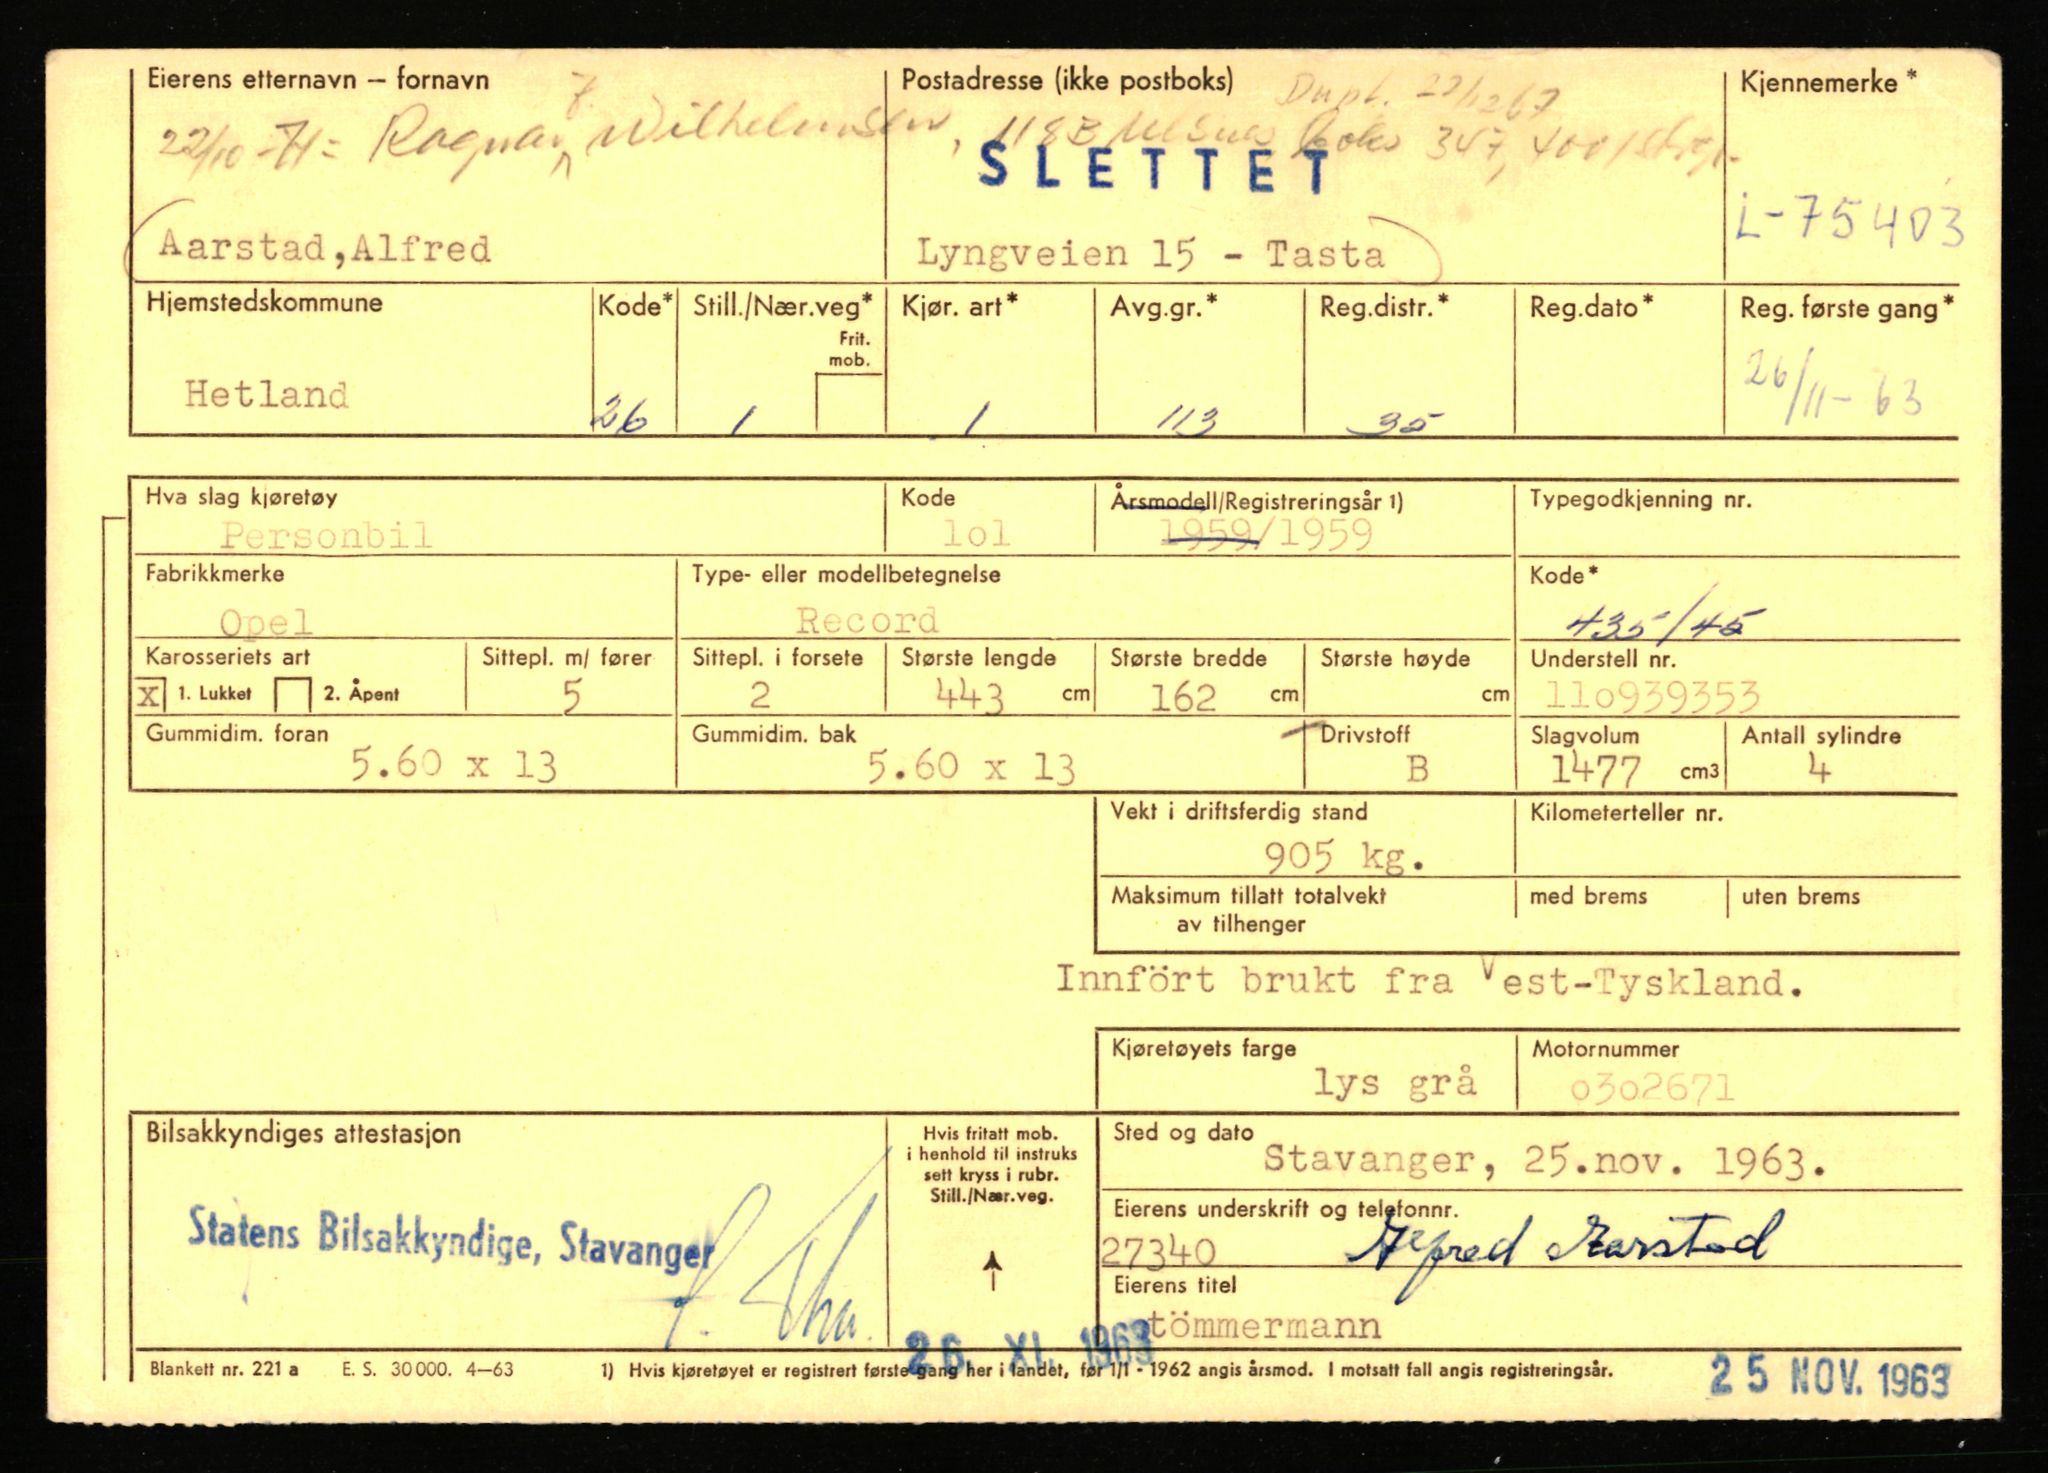 Eierens etternavn – fornavn
Postadresse (ikke postboks)
Kjennemerke*
Dupl. 22/12 67
22/10-71= Ragnar F. Wilhelmsen, 4118 boks 347, 4001
SLETTET
L-75403
Aarstad,Alfred
Lyngveien 15 - Tasta
Hjemstedskommune
Kode*
Still./Nær.veg*
Frit. mob.
Kjør. art*
Avg.gr.*
Reg.distr.*
Reg.dato*
Reg. første gang*
Hetland
26
1
1
113
35
26/11-63
Hva slag kjøretøy
Kode
Årsmodell/Registreringsår 1)
Typegodkjenning nr.
Personbil
lol
1959/1959
Fabrikkmerke
Type- eller modellbetegnelse
Kode*
Opel
Record
435/45
Karosseriets art
Sittepl. m/ fører
Sittepl. i forsete
Største lengde
Største bredde
Største høyde
Understell nr.
X 1. Lukket 2. Åpent
5
2
443 cm
162 cm
cm
llo939353
Gummidim. foran
Gummidim. bak
Drivstoff
Slagvolum
Antall sylindre
5.60 x 13
5.60 x 13
B
1477 cm3
4
Vekt i driftsferdig stand
Kilometerteller nr.
905 kg.
Maksimum tillatt totalvekt
av tilhenger
med brems
uten brems
Innfört brukt fra Vest-Tyskland.
Kjøretøyets farge
Motornummer
lys grå
o3o2671
Bilsakkyndiges attestasjon
Hvis fritatt mob.
i henhold til instruks
sett kryss i rubr.
Still./Nær.veg.
Sted og dato
Stavanger, 25.nov. 1963.
Statens Bilsakkyndige, Stavanger
Eierens underskrift og telefonnr.
27340
Alfred Aarstad
Eierens titel
tömmermann
26. XI. 1963
Blankett nr. 221 a E. S. 30000. 4–63
1) Hvis kjøretøyet er registrert første gang her i landet, før 1/1 - 1962 angis årsmod. I motsatt fall angis registreringsår.
25 NOV. 1963